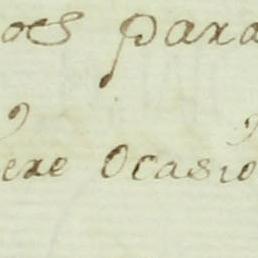 oes para
ere Ocasio